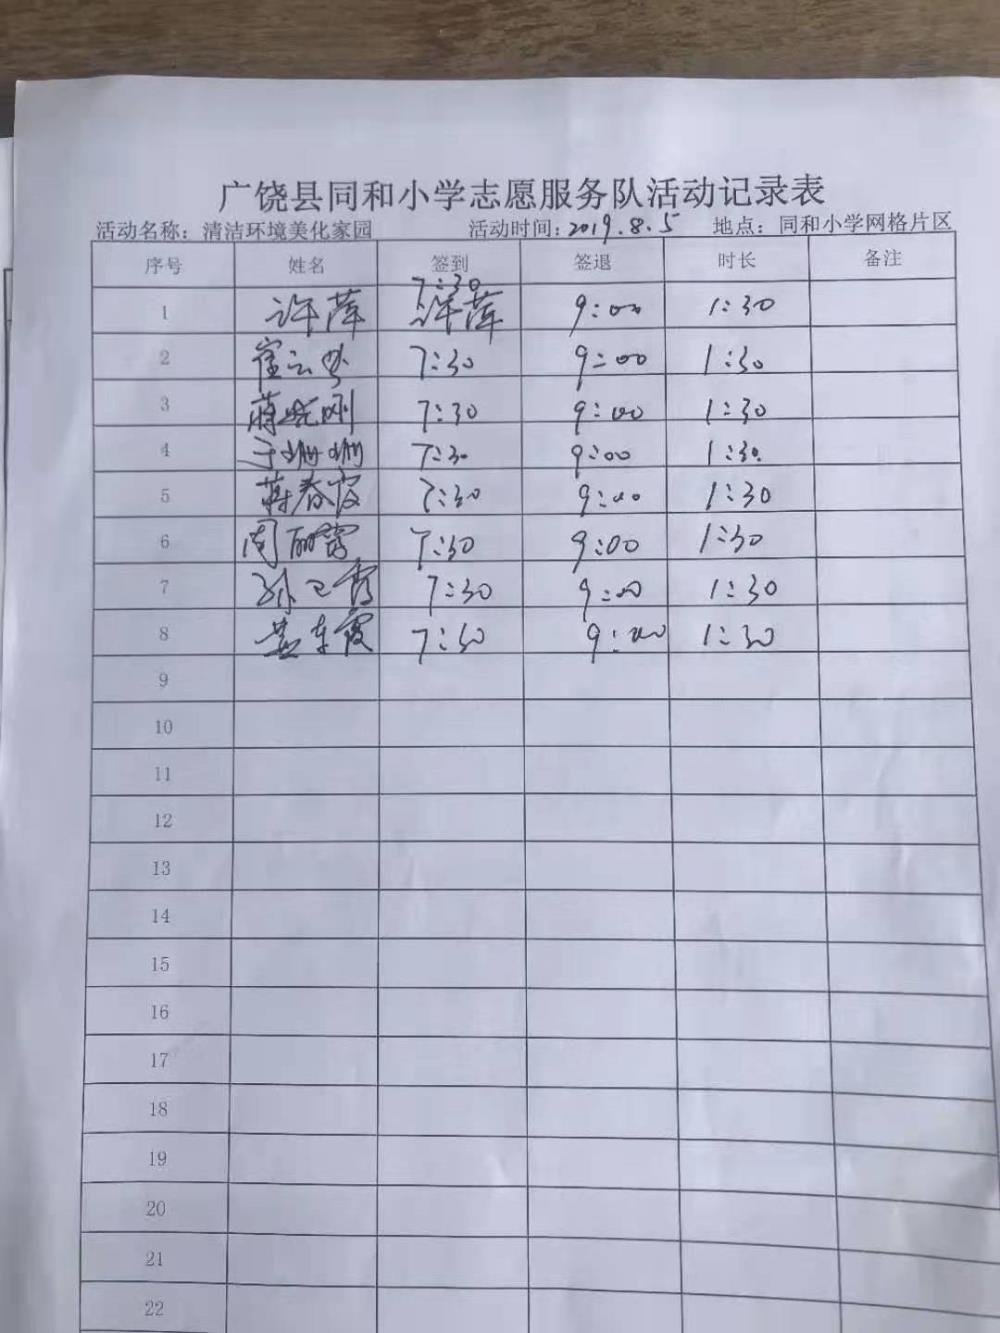 广饶县同和小学志愿服务队活动记录表
活动名称：清洁环境美化家园 活动时间：2019.8.5 地点：同和小学网格片区
序号 姓名 签到 签退 时长 备注
1 许萍 7:30 许萍 9:00 1:30
2 7:30 9:00 1:30
3 7:30 9:00 1:30
4 于珊珊 7:30 9:00 1:30.
5 蒋春霞 7:30 9:00 1:30
6 周丽霞 7:30 9:00 1:30
7 孙卫霞 7:30 9:00 1:30
8 盖东霞 7:30 9:00 1:30
9
10
11
12
13
14
15
16
17
18
19
20
21
22